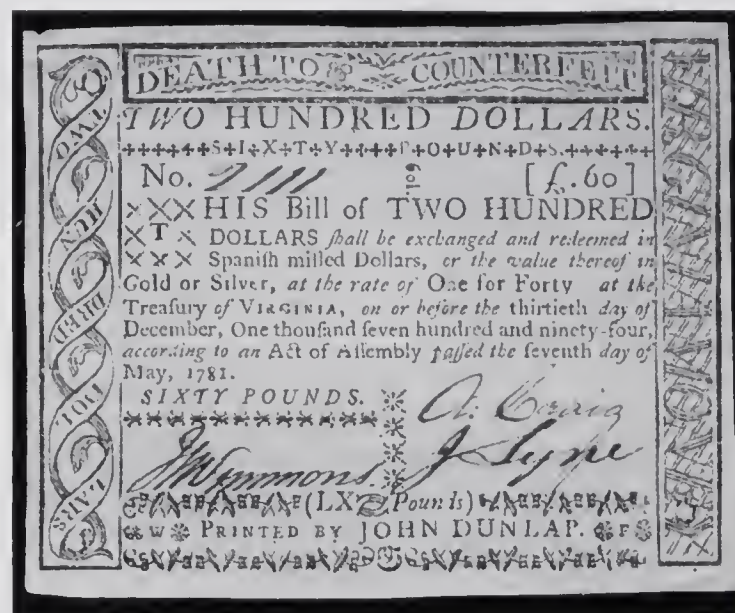 DEATH TO COUNTERFEIT
TWO HUNDRED DOLLARS.
S+I+X+T+Y+++++P+O+U+N+D+S.
No. 7111 [£.60]
THIS Bill of TWO HUNDRED
DOLLARS ſhall be exchanged and redeemed in
Spaniſh milled Dollars, or the value thereof in
Gold or Silver, at the rate of One for Forty at the
Treaſury of VIRGINIA, on or before the thirtieth day of
December, One thouſand ſeven hundred and ninety-four,
according to an Act of Aſſembly paſſed the ſeventh day of
May, 1781.
SIXTY POUNDS.
A. Craig
J Simmons. J Lyne
(LX Pounds)
W PRINTED BY JOHN DUNLAP. F
TWO HUN DRED DOL LARS